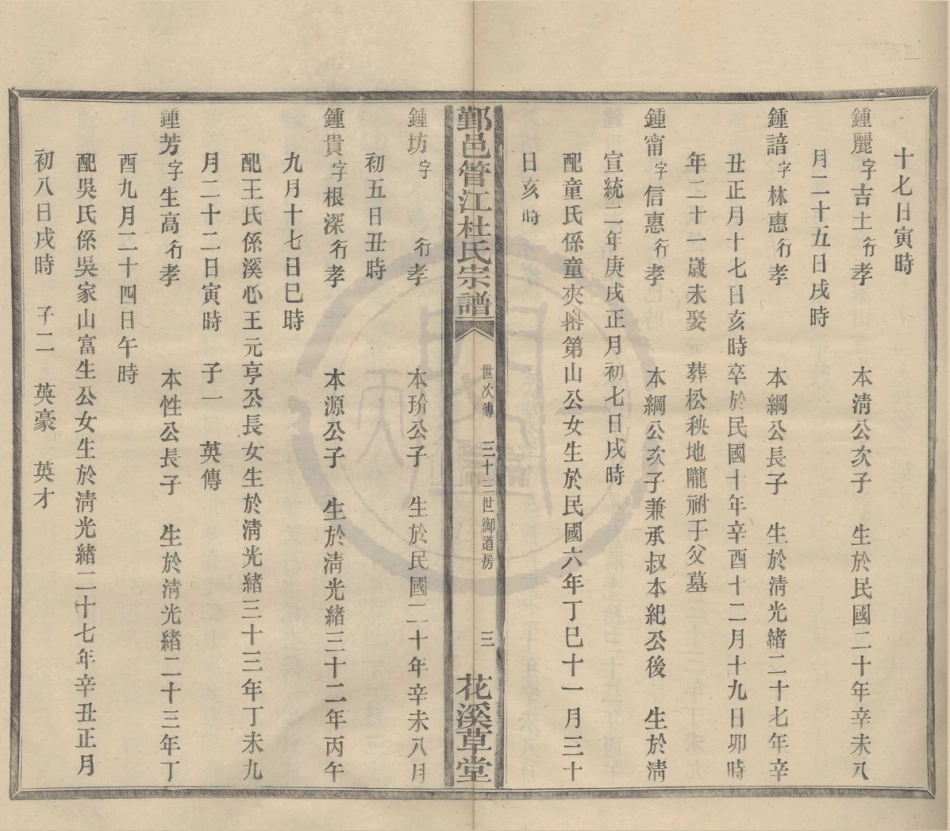 十七日寅時
鍾麗字吉土行孝 本清公次子 生於民國二十年辛未八
月二十五日戌時
鍾諳字林惠行孝 本綱公長子 生於清光緒二十七年辛
丑正月十七日亥時卒於民國十年辛酉十二月十九日卯時
年二十一歲未娶 葬松秧地隴祔于父墓
鍾甯字信惠行孝 本綱公次子兼承叔本紀公後 生於清
宣統二年庚戌正月初七日戌時
配童氏係童夾嶴第山公女生於民國六年丁巳十一月三十
日亥時
鄞邑管江杜氏宗譜 世次傳 三十三世御道房 三 花溪草堂
鍾坊字 行孝 本玠公子 生於民國二十年辛未八月
初五日丑時
鍾貴字根深行孝 本源公子 生於清光緒三十二年丙午
九月十七日巳時
配王氏係溪心王元亨公長女生於清光緒三十三年丁未九
月二十二日寅時 子一 英傳
鍾芳字生高行孝 本性公長子 生於清光緒二十三年丁
酉九月二十四日午時
配吳氏係吳家山富生公女生於清光緒二十七年辛丑正月
初八日戌時 子二 英豪 英才